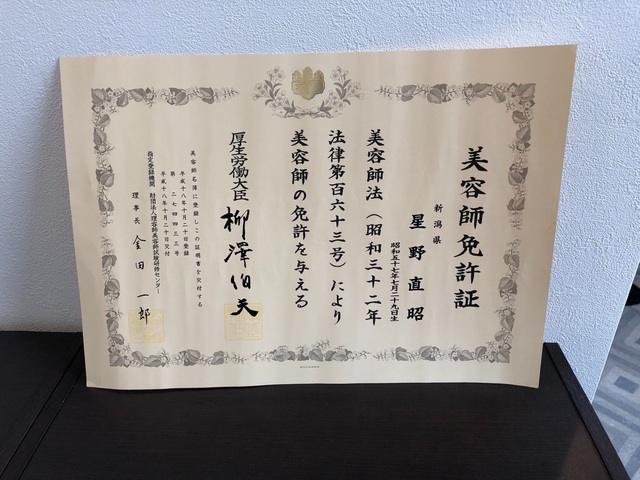 美容師免許証
新潟県
星野直昭
昭和五十七年七月二十九日生
美容師法（昭和三十二年
法律第百六十三号）により
美容師の免許を与える
厚生労働大臣 柳澤伯夫
美容師名簿に登録しこの証明書を交付する
平成十八年十月二十日登録
第二七四四三三号
平成十八年十月二十日交付
指定登録機関 財団法人理容師美容師試験研修センター
理事長 金田一郎